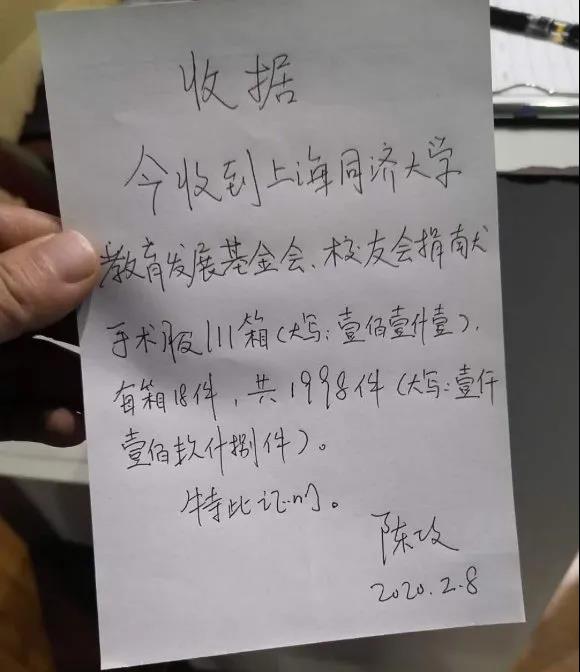 收据
今收到上海同济大学
教育发展基金会、校友会捐献
手术服111箱(大写:壹佰壹什壹),
每箱18件,共1998件(大写:壹仟
壹佰玖什捌件)。
特此证明。
陈
2020.2.8